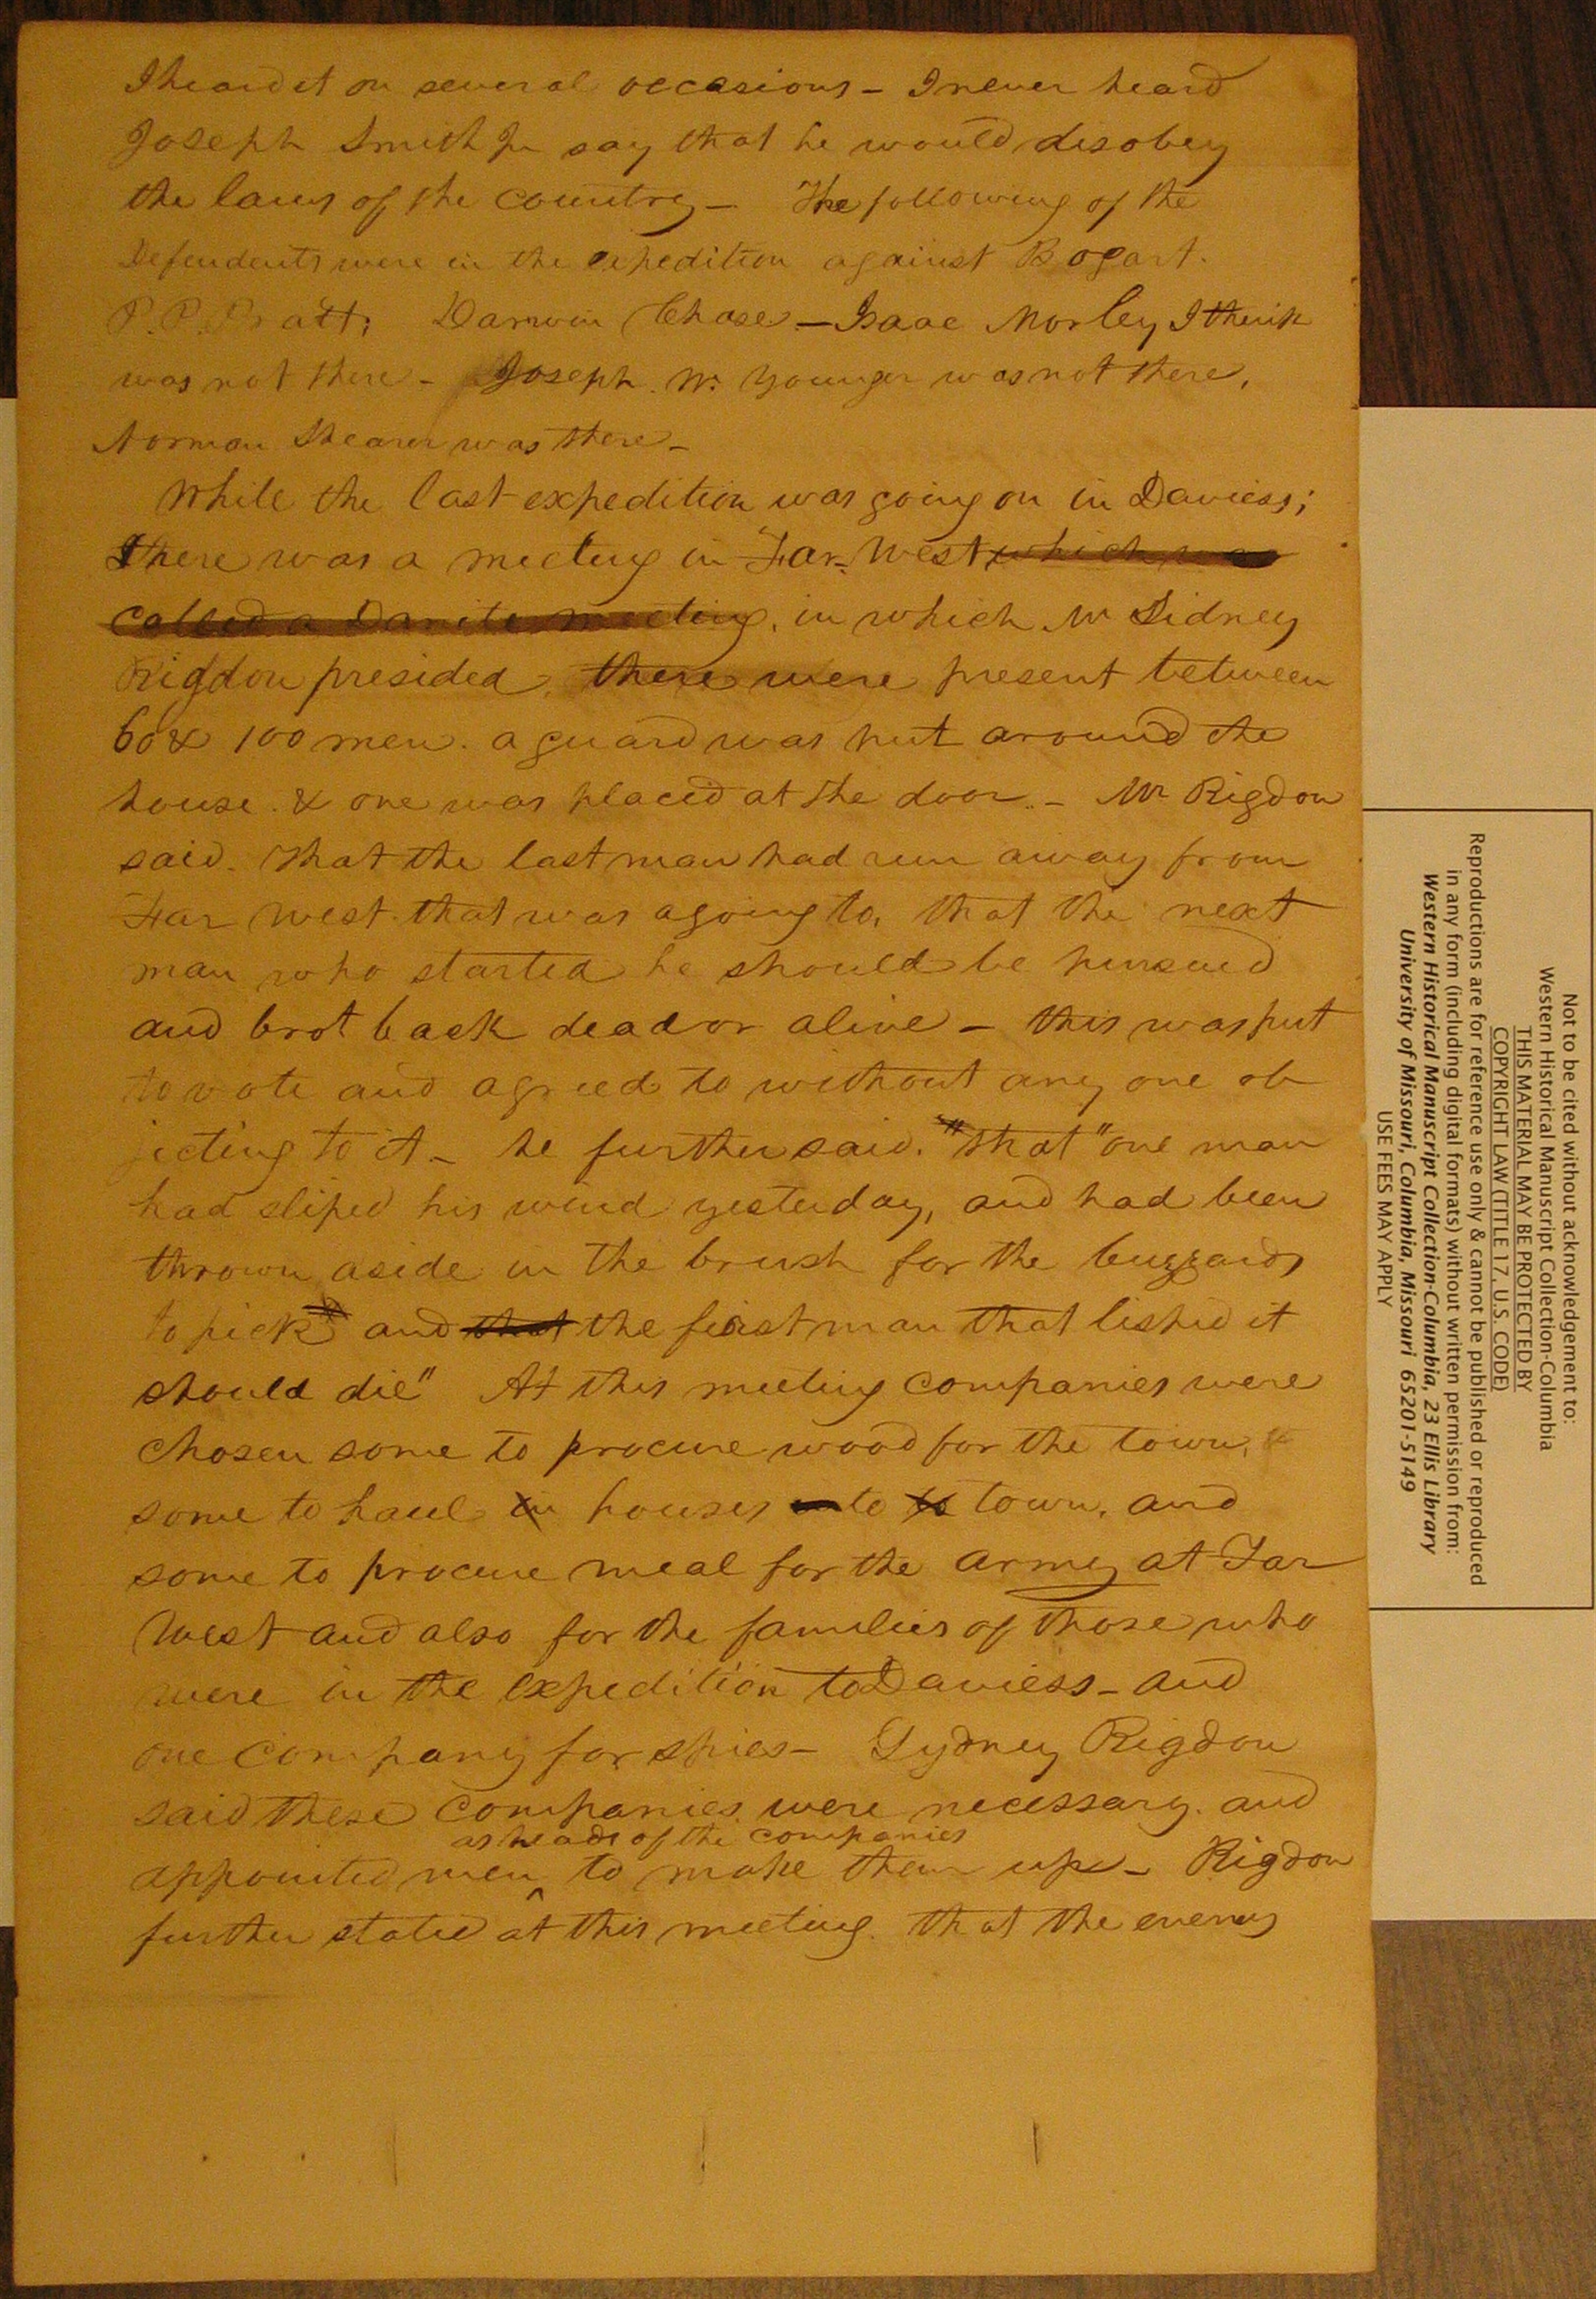 I heard it on several occasions - I never heard
Joseph Smith Jr say that he would disobey
the laws of the country - The following of the
Defendents were in the expedition against Bogart.
P. P. Pratt; Darwin Chase - Isaac Morley I think
was not there - Joseph W. Younger was not there,
Norman Shearer was there -
While the last expedition was going on in Daviess;
There was a meeting in Far West which was
called a Danite meeting, in which Mr Sidney
Rigdon presided, there were present between
60 & 100 men. a guard was put around the
house. & one was placed at the door. - Mr Rigdon
said. that the last man had run away from
Far West that was agoing to, that the next
man who started he should be pursued
and brot back dead or alive - this was put
to vote and agreed to without any one ob
jecting to it - he further said. "that" one man
had sliped his wind yesterday, and had been
thrown aside in the brush for the buzzards
to pick and that the first man that lisped it
should die" At this meeting companies were
chosen some to procure wood for the town, &
some to haul in houses to town, and
some to procure meal for the army at Far
West and also for the families of those who
were in the expedition to Daviess - and
one company for spies - Sydney Rigdon
said these companies were necessary. and
as heads of the companies
appointed men ^ to make them up - Rigdon
further stated at this meeting. that the enemy
Not to be cited without acknowledgement to:
Western Historical Manuscript Collection-Columbia
THIS MATERIAL MAY BE PROTECTED BY
COPYRIGHT LAW (TITLE 17, U.S. CODE)
Reproductions are for reference use only & cannot be published or reproduced
in any form (including digital formats) without written permission from:
Western Historical Manuscript Collection-Columbia, 23 Ellis Library
University of Missouri, Columbia, Missouri 65201-5149
USE FEES MAY APPLY